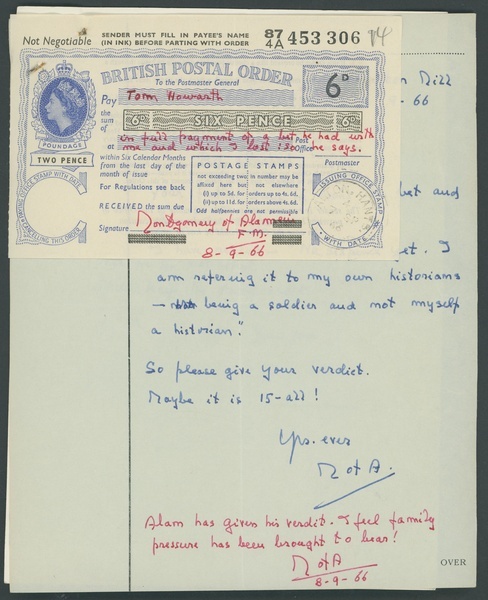 Not Negotiable
SENDER MUST FILL IN PAYEE'S NAME
(IN INK) BEFORE PARTING WITH ORDER
87
4A 453 306
BRITISH POSTAL ORDER
To the Postmaster General
6D
Pay Tom Howarth
the sum of 6D SIX PENCE 6D
in full payment of a bet he had with
at me and which I lost : so he says.
Post Office
POUNDAGE
TWO PENCE
within Six Calendar Months
from the last day of the
month of issue
For Regulations see back
RECEIVED the sum due
POSTAGE STAMPS
not exceeding two in number may be
affixed here but not elsewhere
(i) up to 5d. for orders up to 4s. 6d.
(ii) up to 11d. for orders above 4s. 6d.
Odd halfpennies are not permissible
Postmaster
ISSUING OFFICE STAMP
WITH DATE
Signature Montgomery of Alamein
F.M.
8-9-66
Mill
66
bet and
I
am referring it to my own historians
— being a soldier and not myself
a historian."
So please give your verdict.
Maybe it is 15-all!
Yrs. ever
M of A.
Alam has given his verdit. I feel family
pressure has been brought to bear!
M of A
8-9-66
OVER